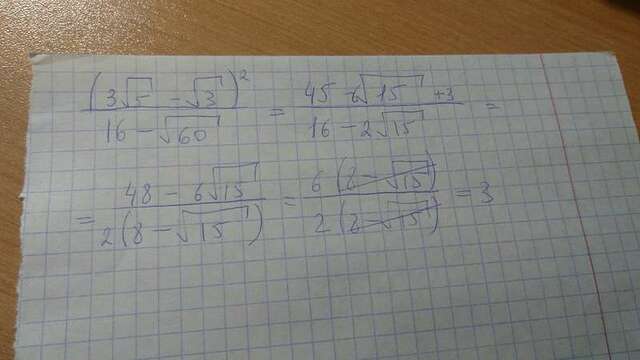 (3√5 - √3)² / 16 - √60 = 45 - 6√15 + 3 / 16 - 2√15 =
= 48 - 6√15 / 2(8 - √15) = 6(8 - √15) / 2(8 - √15) = 3